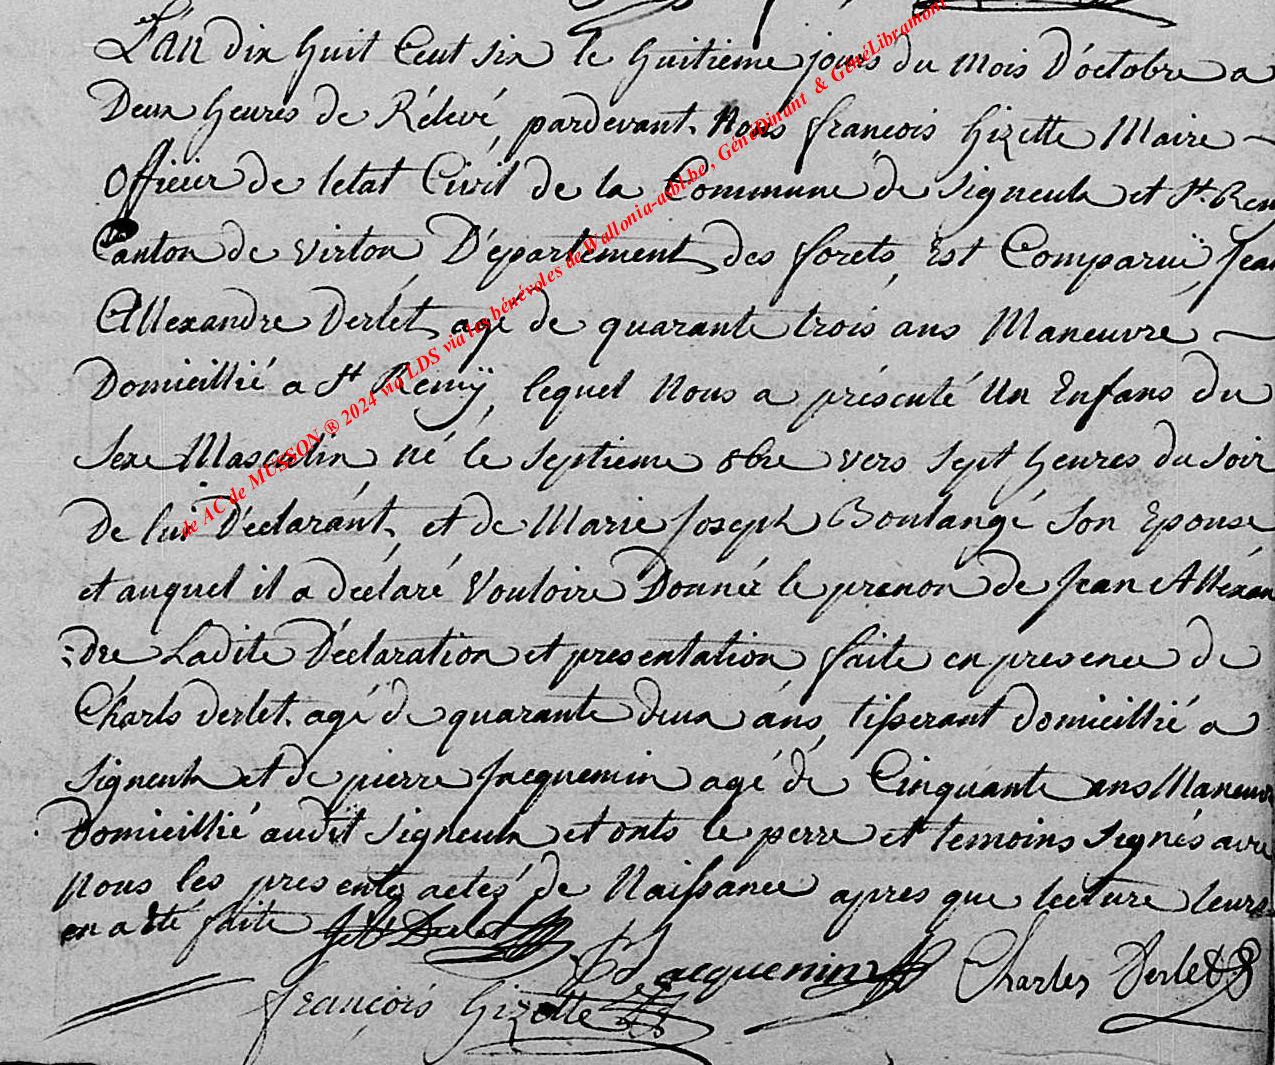 L'an dix huit Cent six le huitieme jours du mois D'octobre a
Deux heures de Rélevé, pardevant Nous françois Gizette Maire
Officier de letat Civil de la Commune de Signeulx et St. Rem
Canton de virton D'épartement des forets, Est Comparuë, Jean
Allexandre Derlet agé de quarante trois ans Maneuvre
Domicillié a St Rémÿ, lequel Nous a présenté Un Enfans du
Sexe Masculin né le Septieme 8bre vers Sept heures du Soir
De lui D'éclarant, et de Marie Joseph Boulangé Son Epouse
et auquel il a déclaré Vouloire Donnér le prénon de Jean Allexan
=dre Ladite Déclaration et presentation, faite en presence de
Charls derlet agé de quarante deux ans, tisserant domicillié a
Signeulx et de pierre Jacquemin agé de Cinquante ans Maneuv
Domicillié audit Signeulx et onts le perre et temoins Signés avec
Nous lés presents actes de Naissance apres que lecture leurs
en a été faite
Derlet
Jacquemin
Charles Derlet
françois Gizette
de AC de MUSSON ® 2024 via LDS via les bénévoles de Wallonia-asbl.be, GénéDinant & GénéLibramont